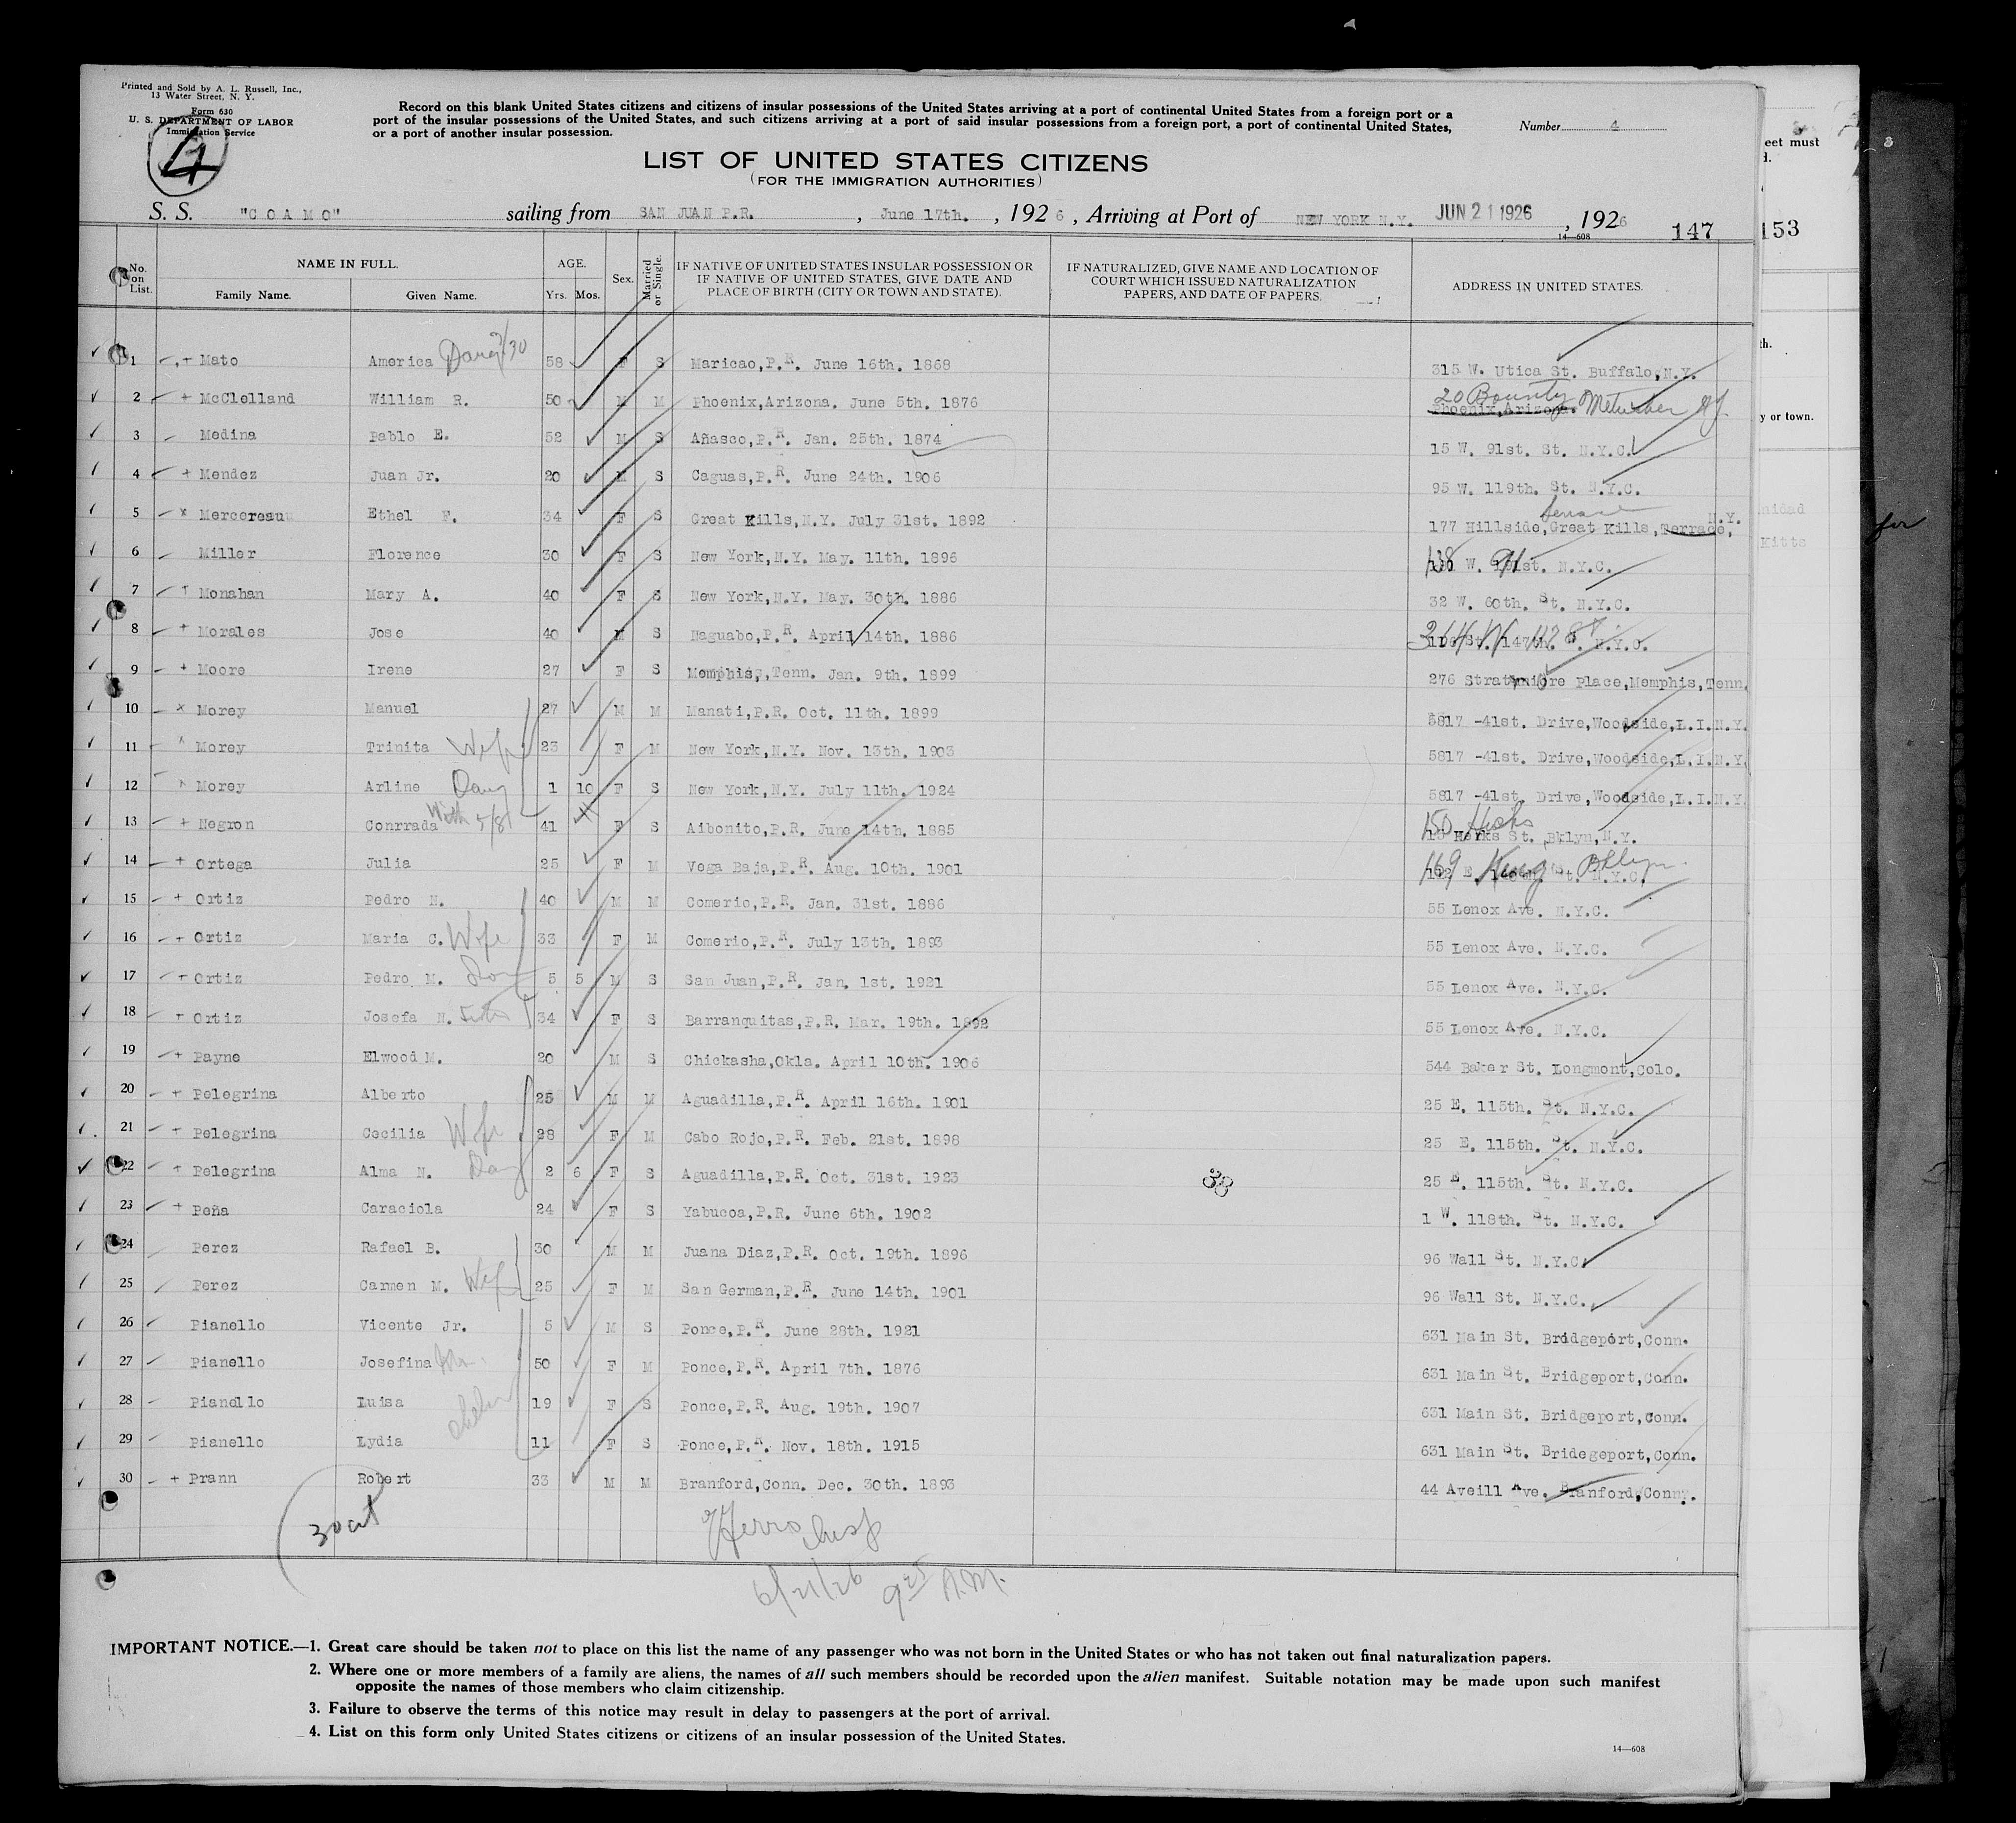 Printed and Sold by A. L. Russell, Inc.,
13 Water Street, N. Y.
Form 630
U. S. DEPARTMENT OF LABOR
Immigration Service
4
Record on this blank United States citizens and citizens of insular possessions of the United States arriving at a port of continental United States from a foreign port or a
port of the insular possessions of the United States, and such citizens arriving at a port of said insular possessions from a foreign port, a port of continental United States,
or a port of another insular possession.
Number 4
LIST OF UNITED STATES CITIZENS
(FOR THE IMMIGRATION AUTHORITIES)
S. S. "COAMO" sailing from SAN JUAN P.R. , June 17th. , 1926 , Arriving at Port of NEW YORK N.Y. JUN 21 1926 , 1926
14-608
147
153
No. on List. NAME IN FULL. Family Name. Given Name. AGE. Yrs. Mos. Sex. Married or Single. IF NATIVE OF UNITED STATES INSULAR POSSESSION OR IF NATIVE OF UNITED STATES, GIVE DATE AND PLACE OF BIRTH (CITY OR TOWN AND STATE). IF NATURALIZED, GIVE NAME AND LOCATION OF COURT WHICH ISSUED NATURALIZATION PAPERS, AND DATE OF PAPERS. ADDRESS IN UNITED STATES.
1 Mato America 58 F S Maricao,P.R. June 16th. 1868 315 W. Utica St. Buffalo,N.Y.
2 McClelland William R. 50 M M Phoenix,Arizona. June 5th. 1876 Phoenix,Arizona. 20
3 Medina Pablo E. 52 M S Añasco,P.R. Jan. 25th. 1874 15 W. 91st. St. N.Y.C.
4 Mendez Juan Jr. 20 M S Caguas,P.R. June 24th. 1906 95 W. 119th. St. N.Y.C.
5 Mercereau Ethel F. 34 F S Great Kills,N.Y. July 31st. 1892 177 Hillside, terrace Great Kills, Terrace, N.Y.
6 Miller Florence 30 F S New York,N.Y. May. 11th. 1896 138 W. 91st. N.Y.C.
7 Monahan Mary A. 40 F S New York,N.Y. May. 30th. 1886 32 W. 60th. St. N.Y.C.
8 Morales Jose 40 M S Naguabo,P.R. April 14th. 1886 N.Y.C.
9 Moore Irene 27 F S Memphis,Tenn. Jan. 9th. 1899 276 Strathmore Place,Memphis,Tenn.
10 Morey Manuel 27 M M Manati,P.R. Oct. 11th. 1899 5817 -41st. Drive,Woodside,L.I.N.Y.
11 Morey Trinita Wife 23 F M New York,N.Y. Nov. 13th. 1903 5817 -41st. Drive,Woodside,L.I.N.Y.
12 Morey Arline Daug 1 10 F S New York,N.Y. July 11th. 1924 5817 -41st. Drive,Woodside,L.I.N.Y.
13 Negron Conrrada 41 F S Aibonito,P.R. June 14th. 1885 150 Hicks St. Bklyn,N.Y.
14 Ortega Julia 25 F M Vega Baja,P.R. Aug. 10th. 1901 169 King St. Bklyn
15 Ortiz Pedro N. 40 M M Comerio,P.R. Jan. 31st. 1886 55 Lenox Ave. N.Y.C.
16 Ortiz Maria C. Wife 33 F M Comerio,P.R. July 13th. 1893 55 Lenox Ave. N.Y.C.
17 Ortiz Pedro M. Son 5 5 M S San Juan,P.R. Jan. 1st. 1921 55 Lenox Ave. N.Y.C.
18 Ortiz Josefa N. Sister 34 F S Barranquitas,P.R. Mar. 19th. 1892 55 Lenox Ave. N.Y.C.
19 Payne Elwood M. 20 M S Chickasha,Okla. April 10th. 1906 544 Baker St. Longmont,Colo.
20 Pelegrina Alberto 25 M M Aguadilla,P.R. April 16th. 1901 25 E. 115th. St. N.Y.C.
21 Pelegrina Cecilia Wife 28 F M Cabo Rojo,P.R. Feb. 21st. 1898 25 E. 115th. St. N.Y.C.
22 Pelegrina Alma N. Daug 2 6 F S Aguadilla,P.R. Oct. 31st. 1923 25 E. 115th. St. N.Y.C.
23 Peña Caraciola 24 F S Yabucoa,P.R. June 6th. 1902 1 W. 118th. St. N.Y.C.
24 Perez Rafael B. 30 M M Juana Diaz,P.R. Oct. 19th. 1896 96 Wall St. N.Y.C.
25 Perez Carmen M. Wife 25 F M San German,P.R. June 14th. 1901 96 Wall St. N.Y.C.
26 Pianello Vicente Jr. 5 M S Ponce,P.R. June 28th. 1921 631 Main St. Bridgeport,Conn.
27 Pianello Josefina 50 F M Ponce,P.R. April 7th. 1876 631 Main St. Bridgeport,Conn.
28 Pianello Luisa 19 F S Ponce,P.R. Aug. 19th. 1907 631 Main St. Bridgeport,Conn.
29 Pianello Lydia 11 F S Ponce,P.R. Nov. 18th. 1915 631 Main St. Bridegeport,Conn.
30 Prann Robert 33 M M Branford,Conn. Dec. 30th. 1893 44 Aveill Ave. Branford,Conn.
30 cit
6/21/26 9 25 A.M.
IMPORTANT NOTICE.—1. Great care should be taken not to place on this list the name of any passenger who was not born in the United States or who has not taken out final naturalization papers.
2. Where one or more members of a family are aliens, the names of all such members should be recorded upon the alien manifest. Suitable notation may be made upon such manifest
opposite the names of those members who claim citizenship.
3. Failure to observe the terms of this notice may result in delay to passengers at the port of arrival.
4. List on this form only United States citizens or citizens of an insular possession of the United States.
14—608
eet must
y or town.